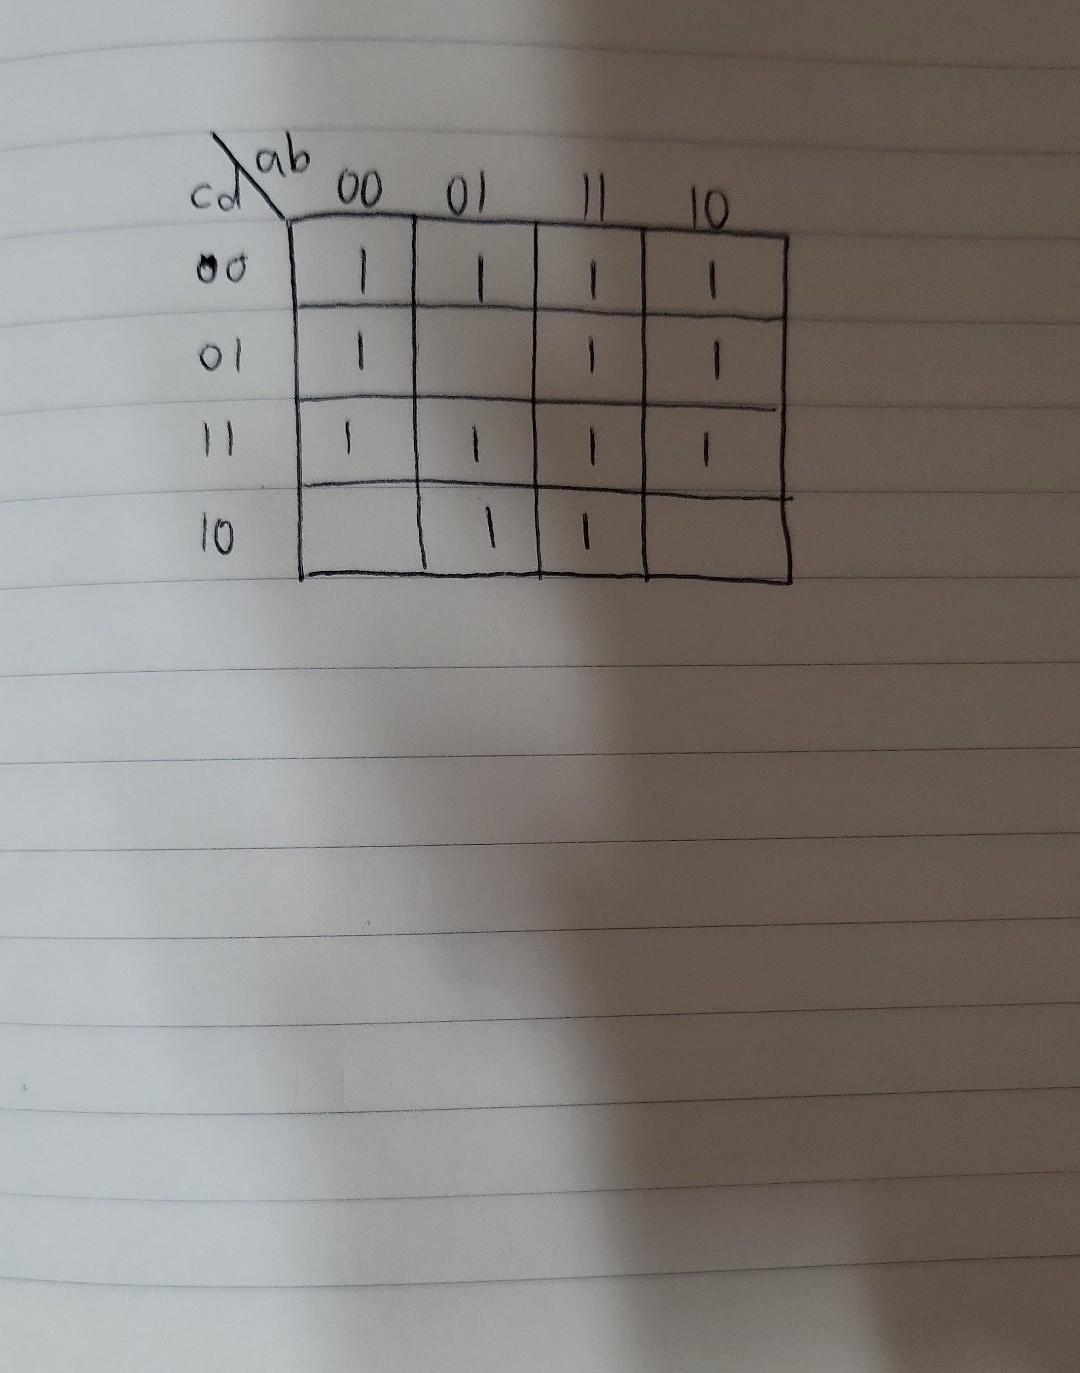 ab
cd 00 01 11 10
00 1 1 1 1
01 1 1 1
11 1 1 1 1
10 1 1